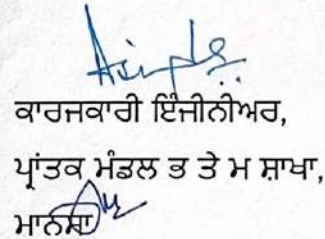 ਕਾਰਜਕਾਰੀ ਇੰਜੀਨੀਅਰ,
ਪ੍ਰਾਂਤਕ ਮੰਡਲ ਭ ਤੇ ਮ ਸ਼ਾਖਾ,
ਮਾਨਸਾ